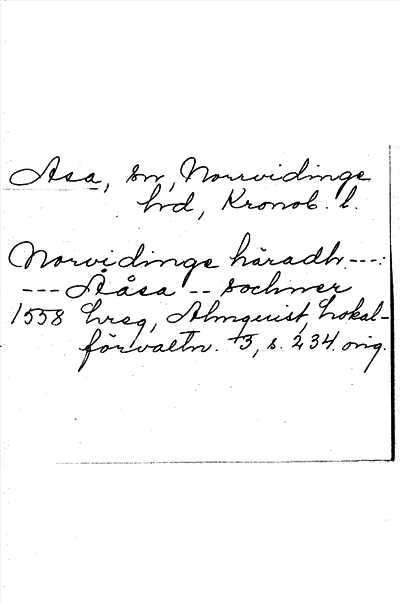 Asa, sn, Norrvidinge
hd, Kronob. l.
Norvidinge häradh ---:
--- Åsa -- sochner
1558 hreg, Almquist, Lokal-
förvaltn. 3, s. 234. orig.